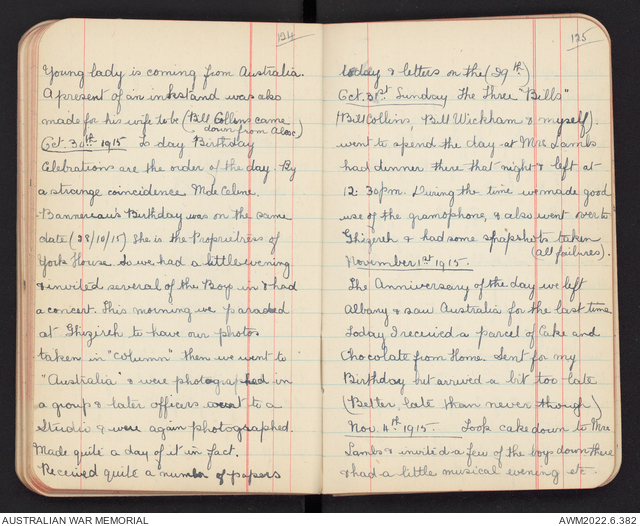 124
Young lady is coming from Australia.
A present of an inkstand was also
made for his wife to be (Bill Collins came
down from Above)
Oct. 30th 1915 To day Birthday
Celebrations are the order of the day. By
a strange coincidence Mde Celine.
Bannereau's Birthday was on the same
date (28/10/15) She is the Proprietress of
York House. So we had a little evening
& invited several of the Boys in & had
a concert. This morning we paraded
at Ghizireh to have our photos
taken in "column" then we went to
"Australia" & were photographed in
a group & later officers went to a
Studio & were again photographed.
Made quite a day of it in fact.
Received quite a number of papers
125
today & letters on the (29th)
Oct. 31st Sunday The Three "Bills"
(Bill Collins, Bill Wickham & myself).
went to spend the day at Mrs Lambs
had dinner there that night & left at
12.30pm. During the time we made good
use of the gramophone, & also went over to
Ghizireh & had some snapshots taken
(all failures).
November 1st 1915.
The Anniversary of the day we left
Albany & saw Australia for the last time.
Today I received a parcel of Cake and
Chocolate from Home. Sent for my
Birthday but arrived a bit too late
(Better late than never though)
Nov. 4th 1915. Took cake down to Mrs
Lambs & invited a few of the boys down there
& had a little musical evening etc.
AUSTRALIAN WAR MEMORIAL
AWM2022.6.382